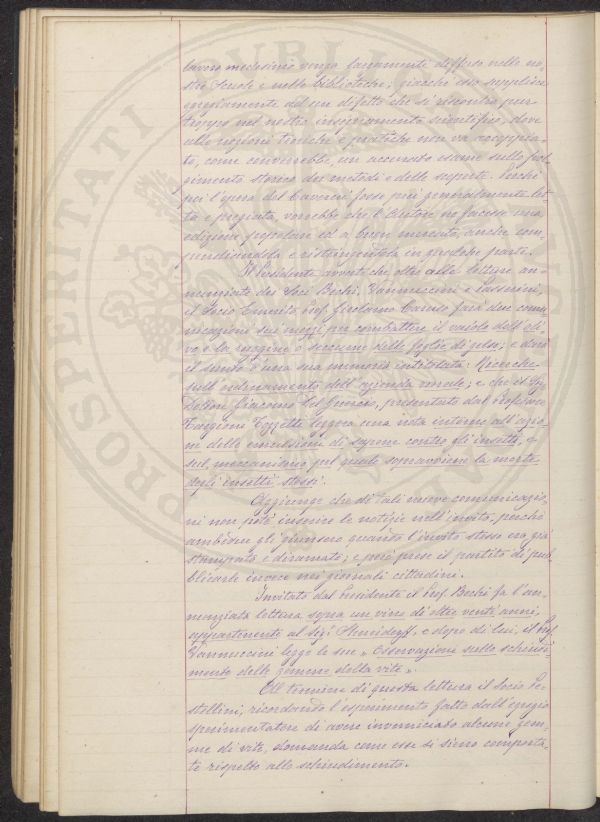 lavoro medesimo venga largamente diffuso nelle no-
stre Scuole e nelle biblioteche; giacchè esso supplisce
egregiamente ad un difetto che si riscontra pur-
troppo nel nostro insegnamento scientifico, dove
alle nozioni teoriche e pratiche non va accoppia-
to, come converrebbe, un accurato esame sullo svol-
gimento storico dei metodi e delle scoperte. Perchè
poi l'opera del fosse più generalmente let-
ta e pregiata, vorrebbe che l'Autore ne facesse una
edizione popolare ed a buon mercato, anche com-
pendiandola e restringendola in qualche parte.
Il Presidente avverte che oltre alle letture an-
nunziate dei Soci Bechi, Vannuccini e Passerini,
il Socio Emerito Prof. Girolamo Caruso farà due comu-
nicazioni sui mezzi per combattere il vaiolo dell'oli-
vo e la ruggine o seccume delle foglie di gelso; e darà
il sunto d'una sua memoria intitolata: Ricerche
sull'ordinamento dell'azienda rurale; e che il Sig.
Dottor Giacomo Del Guercio, presentato dal Professor
Targioni Tozzetti leggerà una nota intorno all'azio-
ne delle emulsioni di sapone contro gli insetti, e
sul meccanismo pel quale sopravviene la morte
degli insetti stessi.
Aggiunge che di tali nuove comunicazio-
ni non potè inserire le notizie nell'invito, perchè
ambedue gli giunsero quando l'invito stesso era già
stampato e diramato; e però prese il partito di pub-
blicarle invece nei giornali cittadini.
Invitato dal Presidente il Prof. Bechi fa l'an-
nunziata lettura sopra un vino di oltre venti anni,
appartenente al Sig. e dopo di lui, il Prof.
Vannuccini legge le sue „ Osservazioni sullo schiudi-
mento delle gemme della vite „.
Al termine di questa lettura il Socio Pe-
stellini, ricordando l'esperimento fatto dall'egregio
sperimentatore di avere inverniciato alcune gem-
me di vite, domanda come esse si sieno comporta-
te rispetto allo schiudimento.
PROSPERITATI PUBLICAE